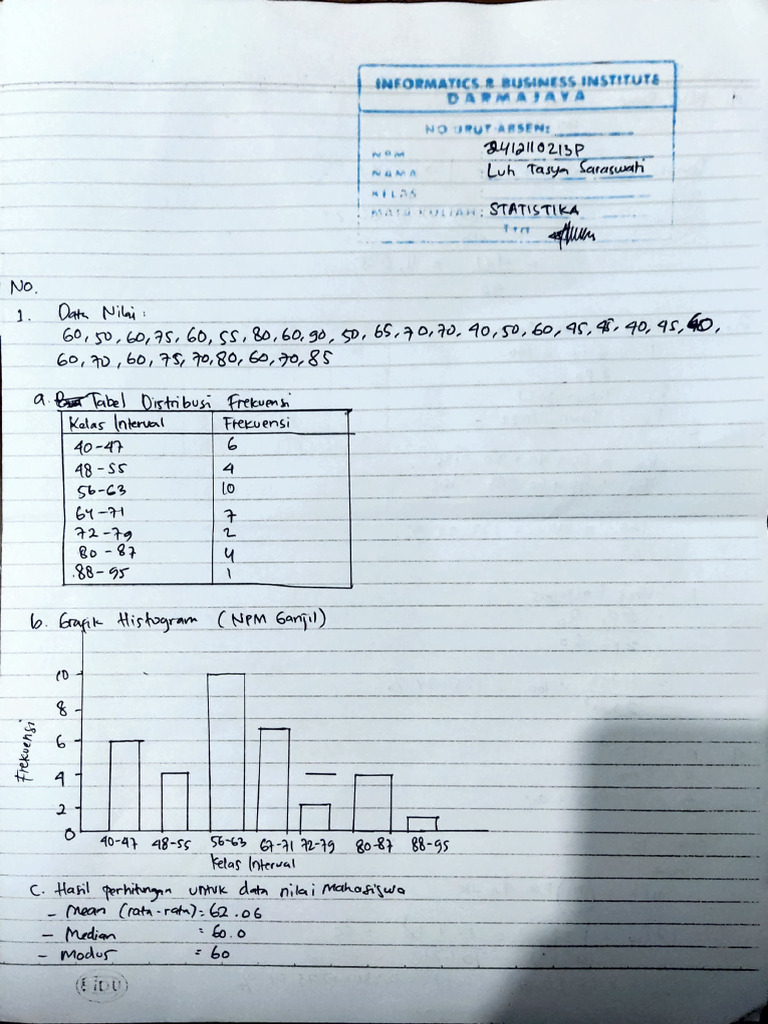 INFORMATICS & BUSINESS INSTITUTE
DARMAJAYA
NO URUT ABSEN:
NPM 2412110213P
NAMA Luh Tasya Saraswati
KELAS
MATA KULIAH : STATISTIKA
TTD
No.
1. Data Nilai :
60, 50, 60, 75, 60, 55, 80, 60, 90, 50, 65, 70, 70, 40, 50, 60, 45, 45, 40, 45,
60, 70, 60, 75, 70, 80, 60, 70, 85
a. Tabel Distribusi Frekuensi
Kelas Interval Frekuensi
40-47 6
48-55 4
56-63 10
64-71 7
72-79 2
80-87 4
88-95 1
b. Grafik Histogram (NPM Ganjil)
Frekuensi
10
8
6
4
2
0
40-47 48-55 56-63 67-71 72-79 80-87 88-95
Kelas Interval
C. Hasil perhitungan untuk data nilai Mahasiswa
- Mean (rata-rata) = 62.06
- Median = 60.0
- Modus = 60